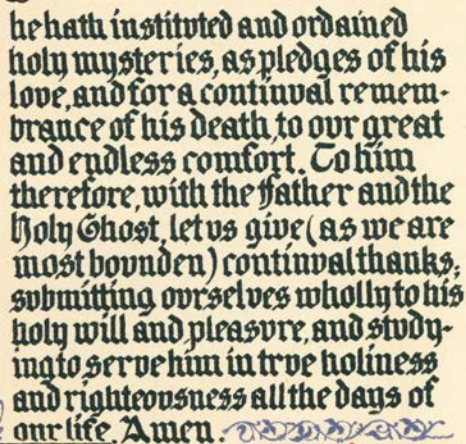 he hath institvted and ordained
holy mysteries, as pledges of his
love, and for a continval remem-
brance of his death, to ovr great
and endless comfort. To him
therefore, with the Father and the
Holy Ghost, let vs give (as we are
most bovnden) continval thanks;
svbmitting ovrselves wholly to his
holy will and pleasvre, and stvdy-
ing to serve him in trve holiness
and righteovsness all the days of
our life. Amen.